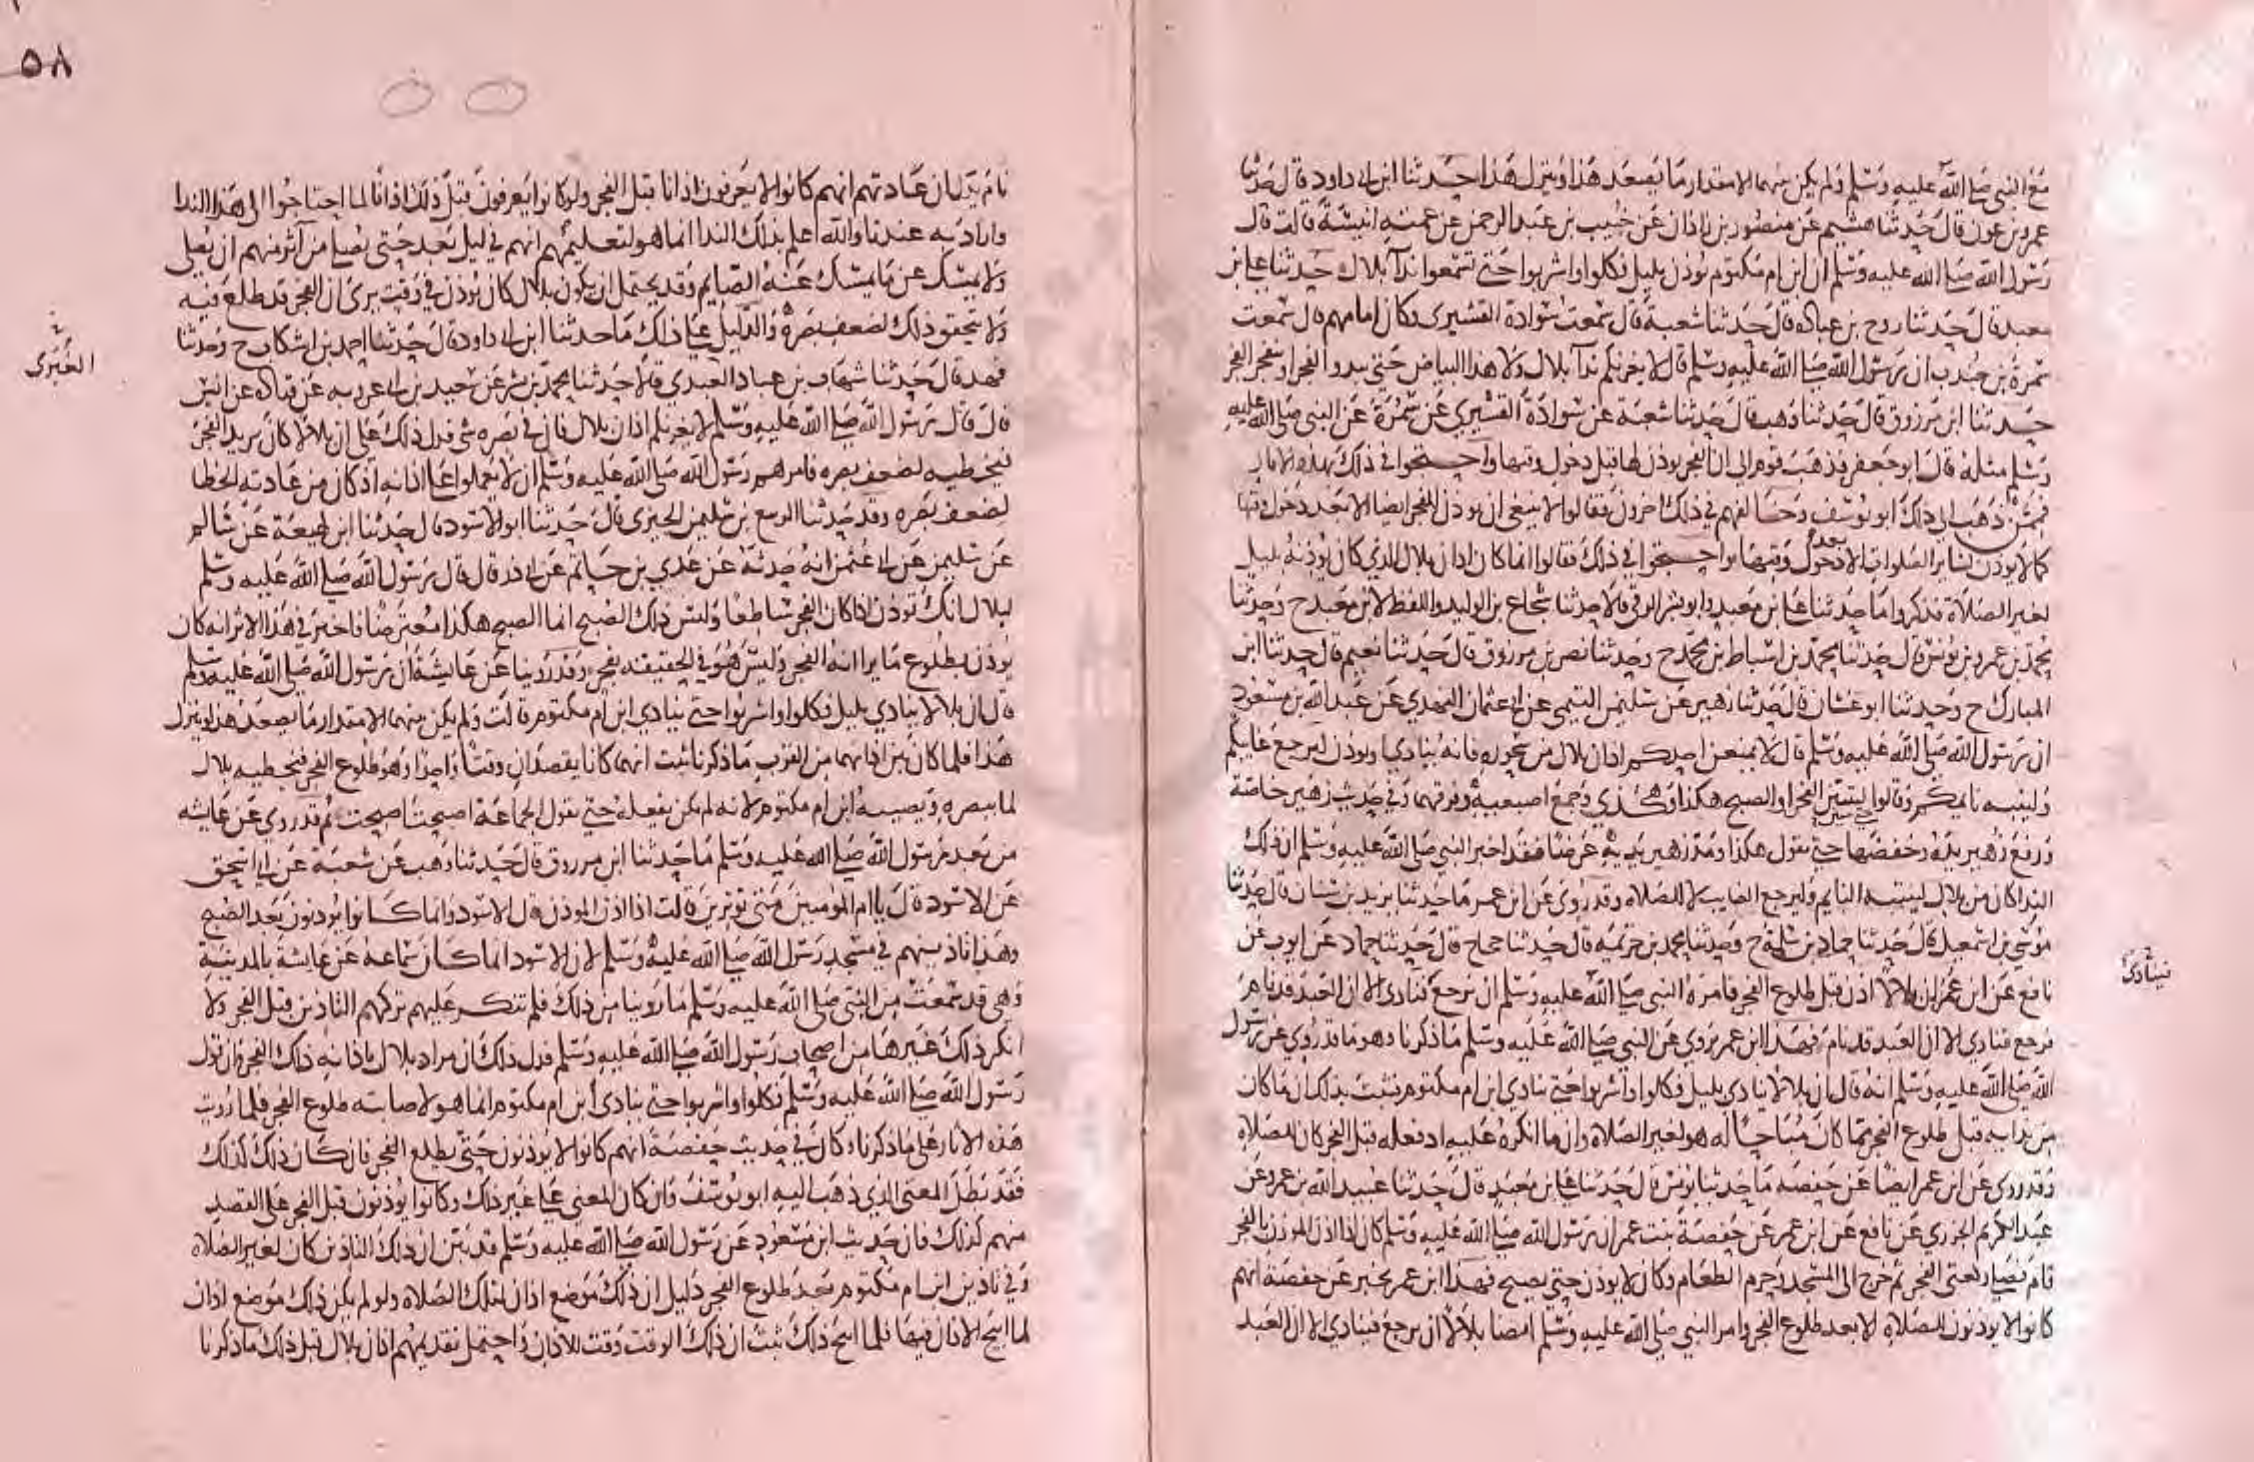 مع النبي صلى الله عليه وسلم ولم يكن بينهما الا مقدار ما يصعد هذا وينزل هذا حدثنا ابن ابي داود قال حدثنا
عمرو بن عون قال حدثنا هشيم عن منصور بن زاذان عن خبيب بن عبد الرحمن عن عمته انيسة قالت قال
رسول الله صلى الله عليه وسلم ان ابن ام مكتوم يوذن بليل فكلوا واشربوا حتى تسمعوا ندآ بلال حدثنا علي بن
معبد قال حدثنا روح بن عباده قال حدثنا شعبة قال سمعت سوادة القشيري وكان امامهم قال سمعت
سمرة بن جندب ان رسول الله صلى الله عليه وسلم قال لا يغرنكم ندآ بلال ولا هذا البياض حتى يبدو الفجر او ينفجر الفجر
حدثنا ابن مرزوق قال حدثنا وهب قال حدثنا شعبة عن سوادة القشيري عن سمرة عن النبي صلى الله عليه
وسلم مثله قال ابو جعفر فذهب قوم الى ان الفجر يوذن لها قبل دخول وقتها واحتجوا في ذلك بهذه الاثار
فممن ذهب الى ذلك ابو يوسف وخالفهم في ذلك اخرون فقالوا لا ينبغي ان يوذن للفجر ايضا الا بعد دخول وقتها
كما لا يوذن لسائر الصلوات الا بعد دخول وقتها واحتجوا في ذلك فقالوا انما كان اذان بلال الذي كان يوذنه بليل
لغير الصلاة فذكروا ما حدثنا علي بن معبد وابو بشر الرقي قالا حدثنا شجاع بن الوليد واللفظ لابن معبد ح وحدثنا
محمد بن عمرو بن يونس قال حدثنا محمد بن اسباط بن محمد ح وحدثنا نصر بن مرزوق قال حدثنا نعيم قال حدثنا ابن
المبارك ح وحدثنا ابو غسان قال حدثنا زهير عن سليمن التيمي عن ابي عثمان النهدي عن عبد الله بن مسعود
ان رسول الله صلى الله عليه وسلم قال لا يمنعن احدكم اذان بلال من سحوره فانه ينادي او يوذن ليرجع غايبكم
ولينبه نايمكم وقالوا ليس الفجر او الصبح هكذا وهكذي وجمع اصبعيه وفرقهما وفي حديث زهير خاصة
ورفع زهير يده وخفضها حتى يقول هكذا ومد زهير يديه عرضا فقد اخبر النبي صلى الله عليه وسلم ان ذلك
الندا كان من بلال لينتبه النايم وليرجع الغايب لا للصلاه وقد روى عن ابن عمر ما حدثنا يزيد بن سنان قال حدثنا
موسى بن اسمعيل قال حدثنا حماد بن سلمة ح وحدثنا محمد بن خزيمه قال حدثنا حجاج قال حدثنا حماد عن ايوب عن
نافع عن ابن عمر ان بلالا اذن قبل طلوع الفجر فامره النبي صلى الله عليه وسلم ان يرجع فنادى الا ان العبد قد نام
فرجع فنادي الا ان العبد قد نام فهذا ابن عمر يروي عن النبي صلى الله عليه وسلم ما ذكرنا وهو ما قد روي عن رسول
الله صلى الله عليه وسلم انه قال ان بلالا ينادي بليل فكلوا واشربوا حتى ينادي ابن ام مكتوم فثبت بذلك ان ما كان
من ندايه قبل طلوع الفجر مما كان مباحا له هو لغير الصلاة وان ما انكره عليه اذ فعله قبل الفجر كان للصلاه
وقد روي عن ابن عمر ايضا عن حفصه ما حدثنا يونس قال حدثنا علي بن معبد قال حدثنا عبيد الله بن عمرو عن
عبد الكريم الجزري عن نافع عن ابن عمر عن حفصة بنت عمر ان رسول الله صلى الله عليه وسلم كان اذا اذن الموذن بالفجر
قام فصلى ركعتي الفجر ثم خرج الى المسجد وحرم الطعام وكان لا يوذن حتى يصبح فهذا ابن عمر يخبر عن حفصة انهم
كانوا لا يوذنون للصلاة الا بعد طلوع الفجر وامر النبي صلى الله عليه وسلم ايضا بلالا ان يرجع فينادي الا ان العبد
فينادى
٥٨
نام يدل ان عادتهم انهم كانوا لا يعرفون اذانا قبل الفجر ولو كانوا يعرفون قبل ذلك اذانا لما احتاجوا الى هذا الندا
واراد به عندنا والله اعلم بذلك الندا انما هو لتعليمهم انهم في ليل بعد حتى يصلي من آثر منهم ان يصلي
ولا يمسك عن ما يمسك عنه الصايم وقد يحتمل ان يكون بلال كان يوذن في وقت يرى ان الفجر قد طلع فيه
ولا يتحقق ذلك لضعف بصره والدليل على ذلك ما حدثنا ابن ابي داود قال حدثنا احمد بن اشكاب ح وحدثنا
فهد قال حدثنا شهاب بن عباد العبدي قالا حدثنا محمد بن بشر عن سعيد بن ابي عروبه عن قتاده عن انس
قال قال رسول الله صلى الله عليه وسلم لا يغرنكم اذان بلال فان في بصره شي فدل ذلك على ان بلالا كان يريد الفجر
فيخطيه لضعف بصره فامرهم رسول الله صلى الله عليه وسلم ان لا يعملوا على اذانه اذ كان من عادته الخطا
لضعف بصره وقد حدثنا الربيع بن سليمن الجيزي قال حدثنا ابو الاسود قال حدثنا ابن لهيعة عن سالم
عن سليمن عن ابي عثمن انه حدثه عن عدي بن حاتم عن ابي ذر قال قال رسول الله صلى الله عليه وسلم
لبلال انك توذن اذا كان الفجر ساطعا وليس ذلك الصبح انما الصبح هكذا معترضا فاخبر في هذا الاثر انه كان
يوذن بطلوع ما يرا انه الفجر وليس هو في الحقيقه بفجر وقد روينا عن عايشة ان رسول الله صلى الله عليه وسلم
قال ان بلالا ينادي بليل فكلوا واشربوا حتى ينادي ابن ام مكتوم قالت ولم يكن بينهما الا مقدار ما يصعد هذا وينزل
هذا فلما كان بين اذانهما من القرب ما ذكرنا ثبت انهما كانا يقصدان وقتا واحدا وهو طلوع الفجر فيخطيه بلال
لما ببصره ويصيبه ابن ام مكتوم لانه لم يكن يفعله حتى يقول الجماعة اصبحت اصبحت ثم قد روي عن عايشه
من بعد رسول الله صلى الله عليه وسلم ما حدثنا ابن مرزوق قال حدثنا وهب عن شعبة عن ابي اسحق
عن الاسود قال يا ام المومنين متى توترين قالت اذا اذن الموذن قال الاسود وانما كانوا يوذنون بعد الصبح
وهذا تاذينهم في مسجد رسول الله صلى الله عليه وسلم لان الاسود انما كان سماعه عن عايشة بالمدينة
وهي قد سمعت من النبي صلى الله عليه وسلم ما روينا من ذلك فلم تنكر عليهم تركهم التاذين قبل الفجر ولا
انكر ذلك غيرها من اصحاب رسول الله صلى الله عليه وسلم فدل ذلك ان مراد بلال باذانه ذلك الفجر وان قول
رسول الله صلى الله عليه وسلم فكلوا واشربوا حتى ينادى ابن ام مكتوم انما هو لاصابته طلوع الفجر فلما رويت
هذه الاثار على ما ذكرنا وكان في حديث حفصة انهم كانوا لا يوذنون حتى يطلع الفجر فان كان ذلك كذلك
فقد بطل المعنى الذي ذهب اليه ابو يوسف وان كان المعنى على غير ذلك وكانوا يوذنون قبل الفجر على القصد
منهم لذلك فان حديث ابن مسعود عن رسول الله صلى الله عليه وسلم قد بين ان ذلك التاذين كان لغير الصلاه
وفي تاذين ابن ام مكتوم بعد طلوع الفجر دليل ان ذلك موضع اذان لتلك الصلاه ولو لم يكن ذلك موضع اذان
لما ابيح الاذان فيها فلما ابيح ذلك ثبت ان ذلك الوقت وقت للاذان واحتمل تقديمهم اذان بلال قبل ذلك ما ذكرنا